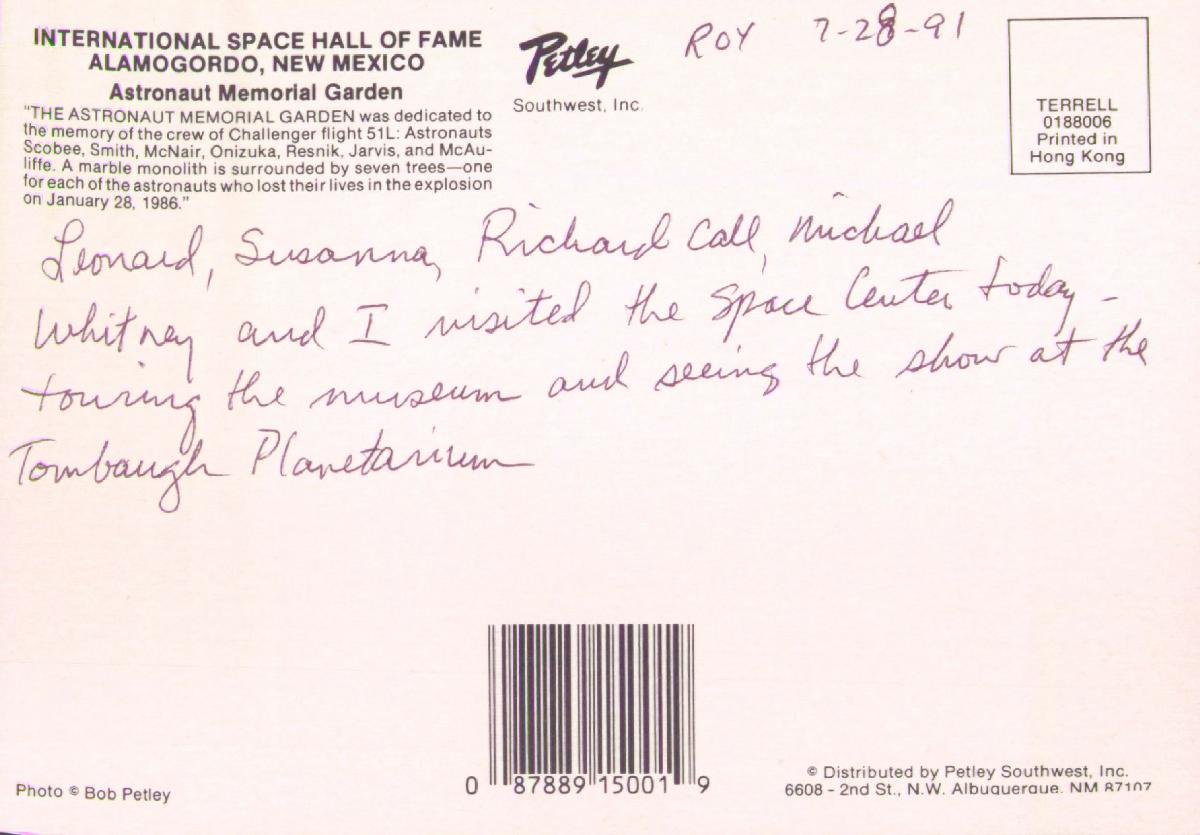 INTERNATIONAL SPACE HALL OF FAME
ALAMOGORDO, NEW MEXICO
Astronaut Memorial Garden
"THE ASTRONAUT MEMORIAL GARDEN was dedicated to
the memory of the crew of Challenger flight 51L: Astronauts
Scobee, Smith, McNair, Onizuka, Resnik, Jarvis, and McAu-
liffe. A marble monolith is surrounded by seven trees—one
for each of the astronauts who lost their lives in the explosion
on January 28, 1986."
Petley
Southwest, Inc.
ROY 7-28-91
TERRELL
0188006
Printed in
Hong Kong
Leonard, Susanna, Richard Call, Michael
Whitney and I visited the Space Center today -
touring the museum and seeing the show at the
Tombaugh Planetarium
0 87889 15001 9
Photo © Bob Petley
© Distributed by Petley Southwest, Inc.
6608 - 2nd St., N.W. Albuquerque, NM 87107